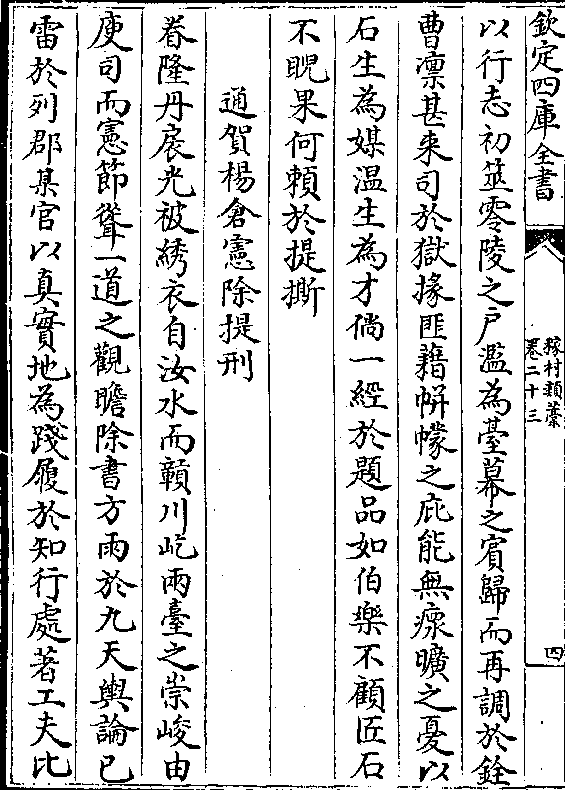 欽定四庫全書
稼村類藁
卷二十三
四
以行志初筮零陵之户濫為臺幕之賓歸而再調於銓
曹凛甚来司於獄掾匪藉帡幪之庇能無瘝曠之憂以
石生為媒温生為才倘一經於題品如伯樂不顧匠石
不睨果何頼於提撕
通賀楊倉憲除提刑
眷隆丹扆光被綉衣自汝水而贑川屹兩臺之崇峻由
庾司而憲節聳一道之觀瞻除書方雨於九天輿論已
雷於列郡某官以真實地為踐履於知行處著工夫比